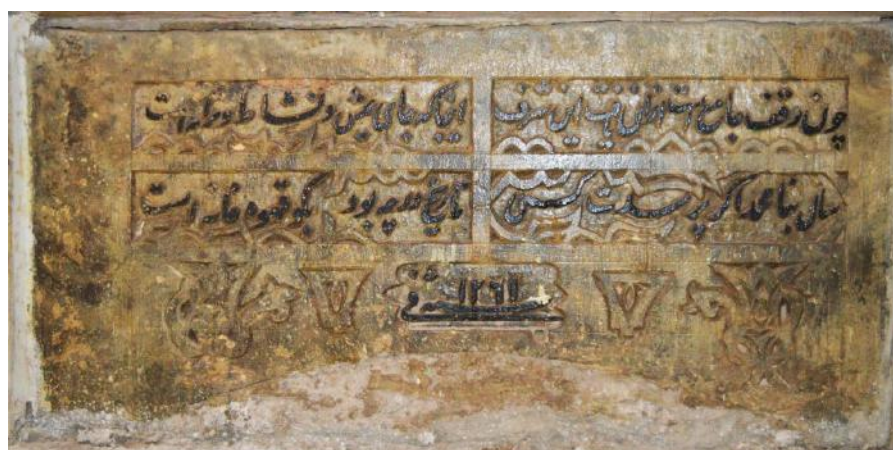 چون وقف جامع است ازان یافت این شرف اینجا که جای عیش و نشاط و ترانه است
سال بنا محمد اگر پرسدت کسی تاریخ او چه بود بگو قهوه خانه است
۱۲۶۱